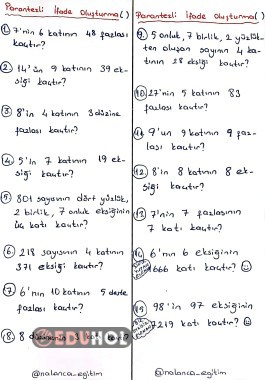 Parantezli İfade Oluşturma( )
1. 7'nin 6 katının 48 fazlası kaçtır?
2. 14'ün 9 katının 39 eksiği kaçtır?
3. 8'in 4 katının 3 düzine fazlası kaçtır?
4. 5'in 7 katının 19 eksiği kaçtır?
5. 801 sayısının dört yüzlük, 2 birlik, 7 onluk eksiğinin üç katı kaçtır?
6. 218 sayısının 4 katının 371 eksiği kaçtır?
7. 6'nın 10 katının 5 deste fazlası kaçtır?
18. 8 düzinenin kaçtır?
@nalanca_egitim
Parantezli İfade Oluşturma( )
9. 5 onluk, 7 birlik, 2 yüzlükten oluşan sayının 4 katının 28 eksiği kaçtır?
10. 27'nin 5 katının 83 fazlası kaçtır?
11. 9'un 9 katının 9 fazlası kaçtır?
12. 8'in 8 katının 8 eksiği kaçtır?
13. 7'nin 7 fazlasının 7 katı kaçtır?
14. 6'nın 6 eksiğinin 1666 katı kaçtır?
15. 98'in 97 eksiğinin 7219 katı kaçtır?
@nalanca_egitim